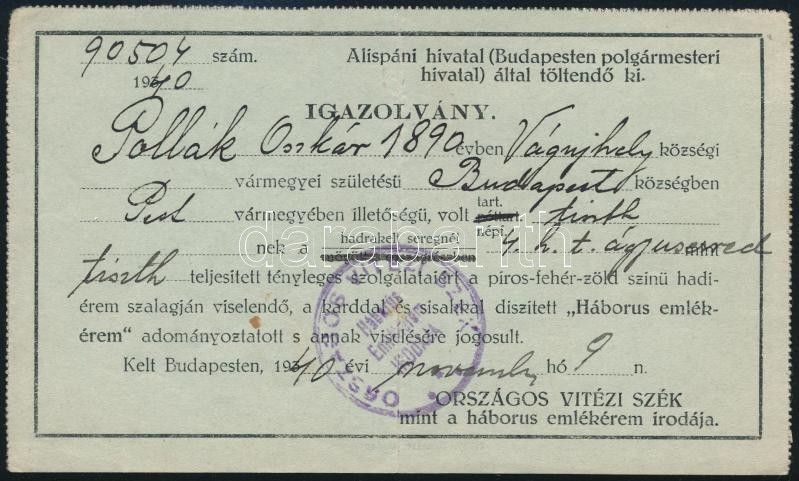 90504 szám.
1940
Alispáni hivatal (Budapesten polgármesteri
hivatal) által töltendő ki.
IGAZOLVÁNY.
Pollák Oszkár 1890 évben Vágujhely községi
vármegyei születésü Budapest községben
Pest vármegyében illetőségü, volt tart. póttart. népf. tiszth
nek a hadrakelt seregnél 4. h. t. ágyusezred mint
tiszth teljesitett tényleges szolgálataiért a piros-fehér-zöld szinü hadi-
érem szalagján viselendő, a karddal és sisakkal diszitett „Háborus emlék-
érem" adományoztatott s annak viselésére jogosult.
Kelt Budapesten, 1940 évi november hó 9 n.
ORSZÁGOS VITÉZI SZÉK
mint a háborus emlékérem irodája.
ORSZÁGOS VITÉZI SZÉK
Háborús
Emlékérem
Irodája
darabanth